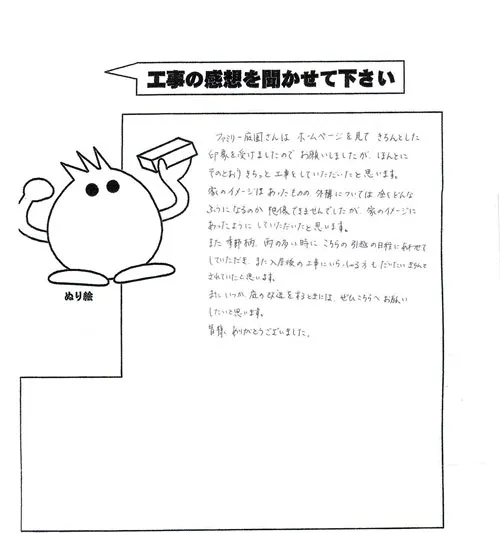 工事の感想を聞かせて下さい
ファミリー庭園さんは ホームページを見て きちんとした
印象を受けましたので お願いしましたが、ほんとに
そのとおり きちっと 工事をしていただいたと思います。
家のイメージは あったものの 外構については 全くどんな
ふうになるのか 想像できませんでしたが、家のイメージに
あったように していただいたと思います。
また 季節柄、雨の多い時に こちらの引越の日程にあわせて
していただき、また入居後の工事にいらっしゃる方も だいたい きちんと
されていたと思います。
また いつか 庭の改造をするときには、ぜひこちらへ お願い
したいと思います。
皆様、ありがとうございました。
ぬり絵